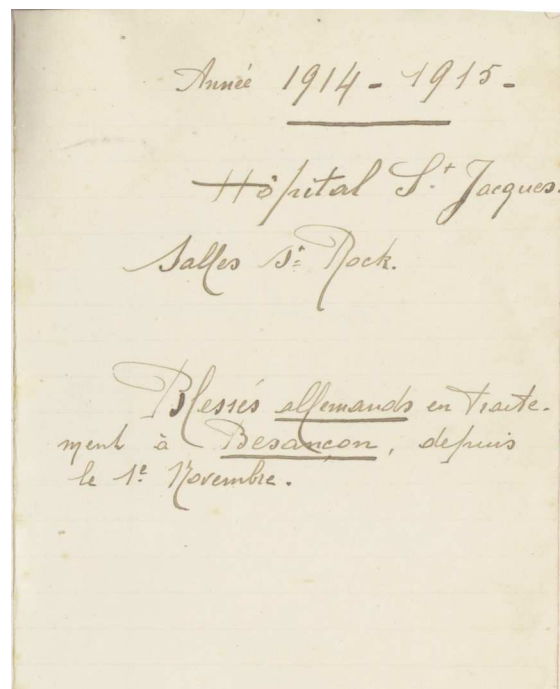 Année 1914 - 1915 -
Hôpital St Jacques.
Salles St Rock.
Blessés allemands en traite-
ment à Besançon, depuis
le 1e Novembre.